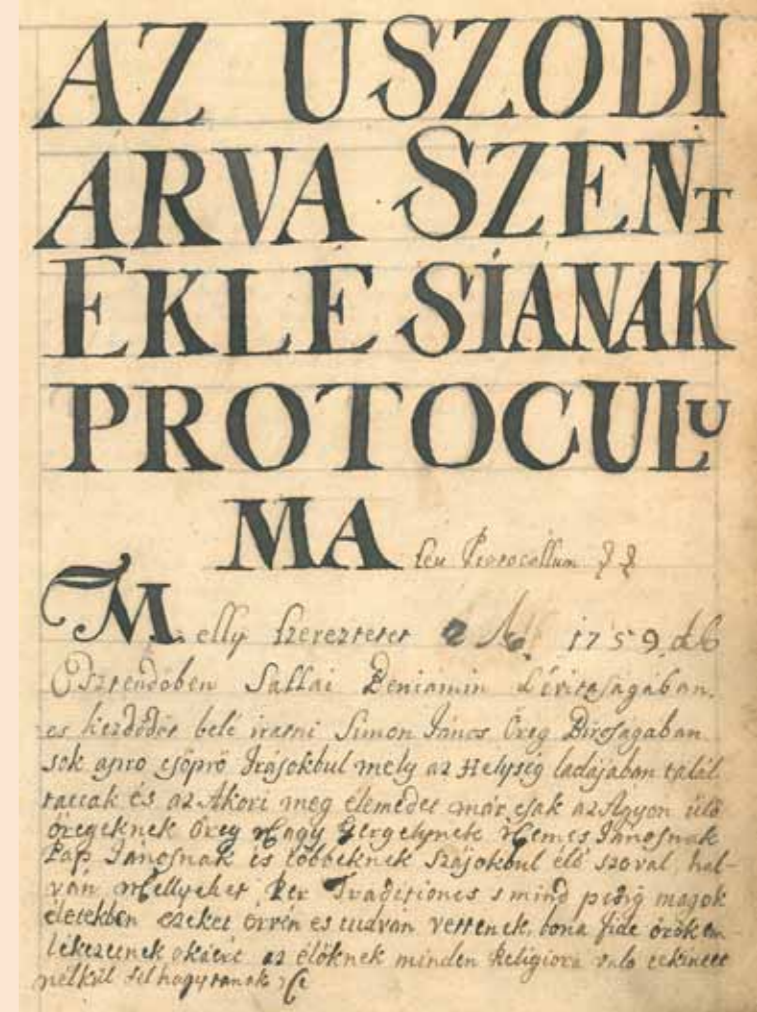 AZ USZODI
ARVA SZENT
EKLESIANAK
PROTOCULU
MA seu Protocollum
Melly szerezteter 1759 dik
Esztendőben Sallai Beniamin Lévitaságában,
es kezdődőt belé iratni Simon János Öreg Biroságaban
sok apro csöprö Irásokbul mely az Helység ladájaban talál
tattak és az Akori meg élemedet már csak az Agyon ülő
öregeknek Öreg Nagy Gergelynek Nemes Jánosnak
Pap Jánosnak es többeknek szájokbul élő szoval, hal-
ván Mellyeket Per Traditiones s mind pedig magok
életekben ezeket érvén es tudván vettenek, bona fide örök em
lékezetnek okáért az élőknek minden Religiora valo tekintet
nélkül fel hagytanak